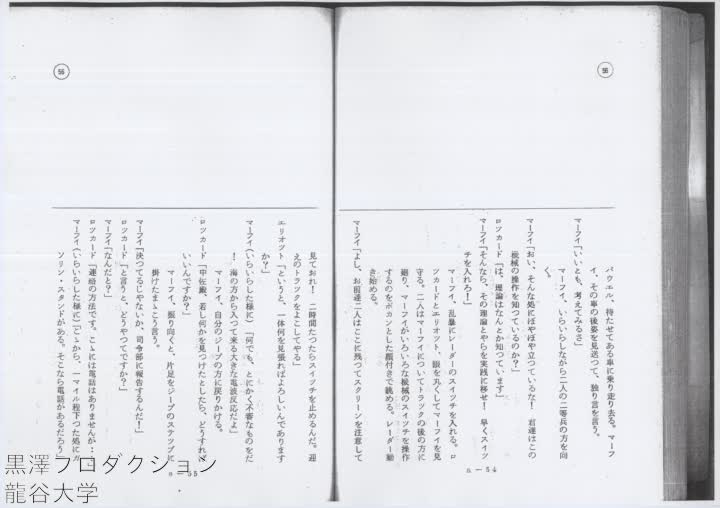 56
パウエル、待たせてある車に乗り走り去る。マーフ
イ、その車の後姿を見送つて、独り言を言う。
マーフイ「いいとも、考えてみるさ」
マーフイ、いらいらしながら二人の二等兵の方を向
く。
マーフイ「おい、そんな処にぼやぼや立つているな! 君達はこの
機械の操作を知つているのか?」
ロツカード「は、理論はなんとか知つています」
マーフイ「そんなら、その理論とやらを実践に移せ! 早くスイツ
チを入れろ!」
マーフイ、乱暴にレーダーのスイツチを入れる。ロ
ツカードとエリオツト、眼を丸くしてマーフイを見
守る。二人はマーフイについてトラツクの後の方に
廻り、マーフイがいろいろな機械のスイツチを操作
するのをポカンとした顔付きで眺める。レーダー動
き始める。
マーフイ「よし、お前達二人はここに残つてスクリーンを注意して
a—54
56
見ておれ! 二時間たつたらスイツチを止めるんだ。迎
えのトラツクをよこしてやる」
エリオツト「というと、一体何を見張ればよろしいんであります
か?」
マーフイ(いらいらした様に)「何でも、とにかく不審なものをだ
! 海の方から入つて来る大きな電波反応だよ」
マーフイ、自分のジープの方に戻りかける。
ロツカード「中佐殿、若し何かを見つけたとしたら、どうすれば
いいんですか?」
マーフイ、振り向くと、片足をジープのステツプに
掛けたまゝこう言う。
マーフイ「決つてるじやないか、司令部に報告するんだ!」
ロツカード「と言うと、どうやつてですか?」
マーフイ「なんだと?」
ロツカード「連絡の方法です。こゝには電話はありませんが…
マーフイ(いらいらした様に)「こゝから、一マイル程下つた処にガ
ソリン・スタンドがある。そこなら電話があるだろう
a—55
黒澤プロダクション
龍谷大学